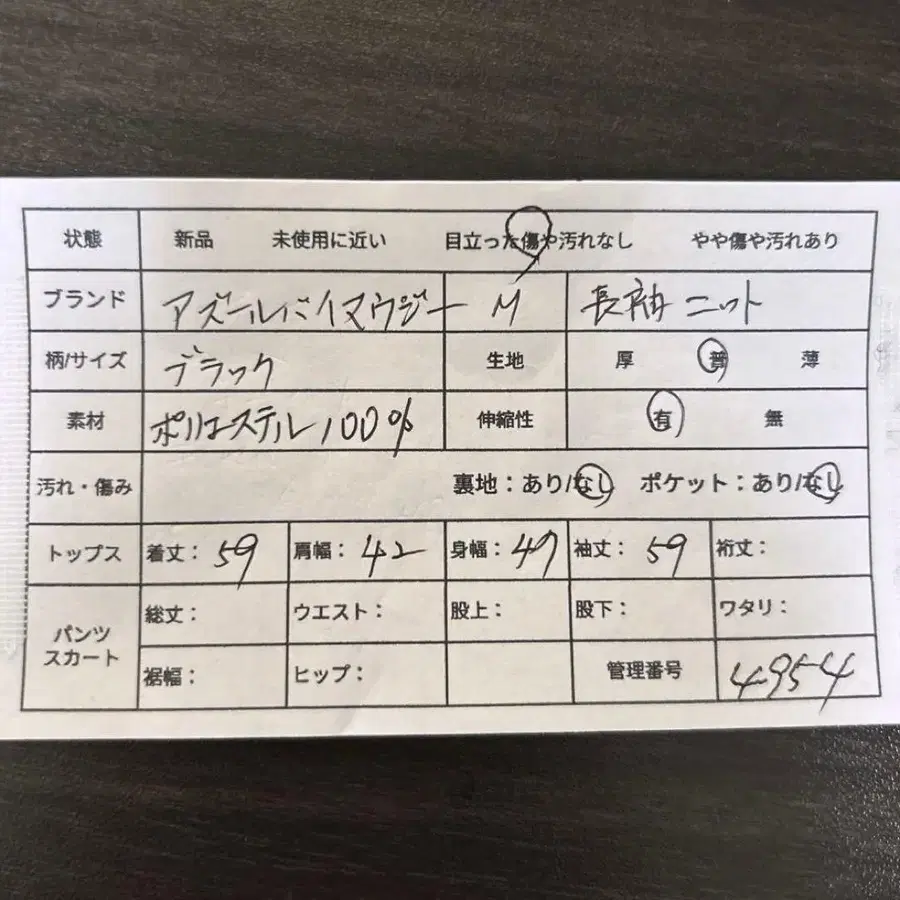 状態 新品 未使用に近い 目立った傷や汚れなし やや傷や汚れあり
ブランド アズールバイマウジー M 長袖ニット
柄/サイズ ブラック 生地 厚 普 薄
素材 ポリエステル100% 伸縮性 有 無
汚れ・傷み 裏地：あり/なし ポケット：あり/なし
トップス 着丈：59 肩幅：42 身幅：47 袖丈：59 裄丈：
パンツ スカート 総丈： ウエスト： 股上： 股下： ワタリ：
裾幅： ヒップ： 管理番号 4954